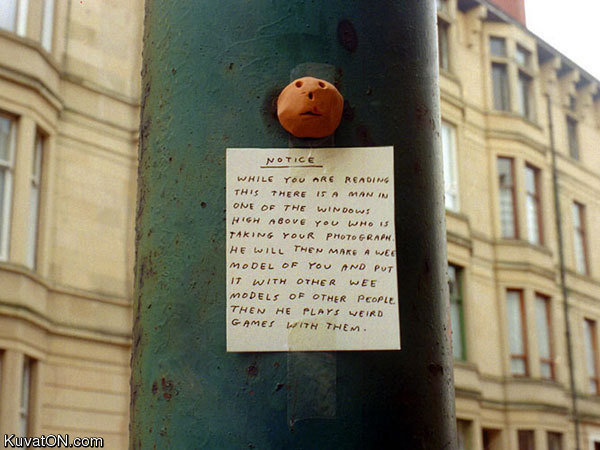 NOTICE
WHILE YOU ARE READING
THIS THERE IS A MAN IN
ONE OF THE WINDOWS
HIGH ABOVE YOU WHO IS
TAKING YOUR PHOTOGRAPH.
HE WILL THEN MAKE A WEE
MODEL OF YOU AND PUT
IT WITH OTHER WEE
MODELS OF OTHER PEOPLE
THEN HE PLAYS WEIRD
GAMES WITH THEM.
KuvatON.com